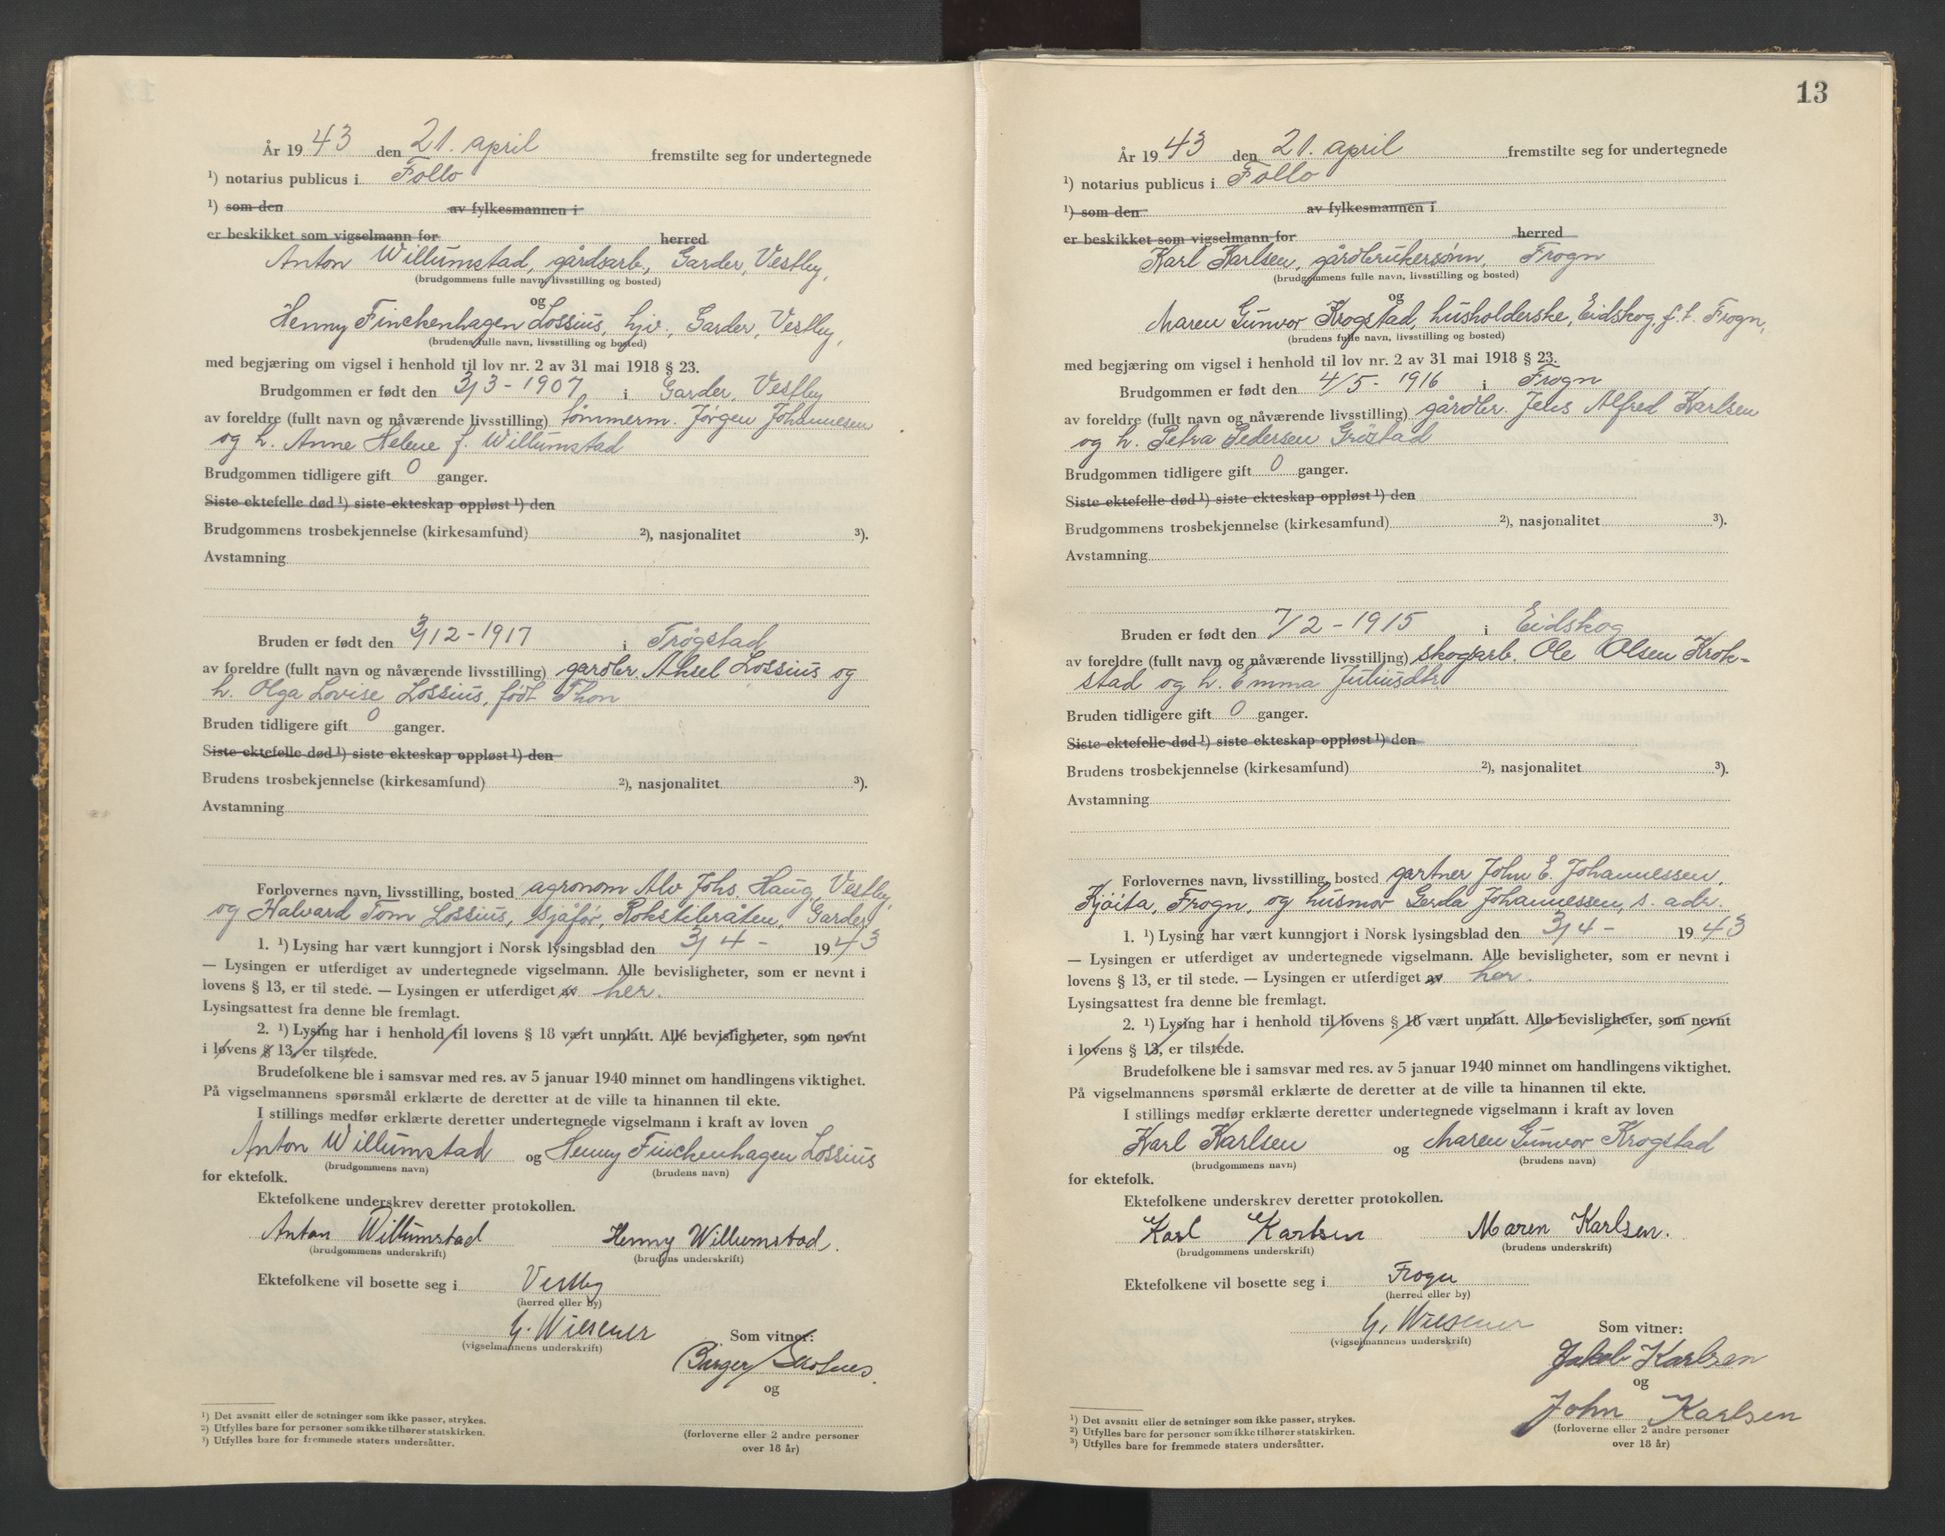 År 19 43 den 21. april fremstilte seg for undertegnede
¹) notarius publicus i Follo
¹) som den av fylkesmannen i
er beskikket som vigselmann for herred
Anton Willumstad, gårdsarb., Garder, Vestby,
(brudgommens fulle navn, livsstilling og bosted)
og
Henny Finckenhagen Lossius, hjv., Garder, Vestby,
(brudens fulle navn, livsstilling og bosted)
med begjæring om vigsel i henhold til lov nr. 2 av 31 mai 1918 § 23.
Brudgommen er født den 3/3 - 1907 i Garder, Vestby
av foreldre (fullt navn og nåværende livsstilling) tømmerm. Jørgen Johannesen
og h. Anne Helene f. Willumstad
Brudgommen tidligere gift 0 ganger.
Siste ektefelle død ¹) siste ekteskap oppløst ¹) den
Brudgommens trosbekjennelse (kirkesamfund) ²), nasjonalitet ³).
Avstamning
Bruden er født den 3/12 - 1917 i Trøgstad
av foreldre (fullt navn og nåværende livsstilling) gårdbr. Aksel Lossius og
h. Olga Lovise Lossius, født Thon
Bruden tidligere gift 0 ganger.
Siste ektefelle død ¹) siste ekteskap oppløst ¹) den
Brudens trosbekjennelse (kirkesamfund) ²), nasjonalitet ³).
Avstamning
Forlovernes navn, livsstilling, bosted agronom Alv Johs. Haug, Vestby,
og Halvard Tom Lossius, sjåfør, Rokstibråten, Garder
1. ¹) Lysing har vært kunngjort i Norsk lysingsblad den 3/4 - 1943
— Lysingen er utferdiget av undertegnede vigselmann. Alle bevisligheter, som er nevnt i
lovens § 13, er til stede. — Lysingen er utferdiget av her.
Lysingsattest fra denne ble fremlagt.
2. ¹) Lysing har i henhold til lovens § 18 vært unnlatt. Alle bevisligheter, som nevnt
i lovens § 13, er tilstede.
Brudefolkene ble i samsvar med res. av 5 januar 1940 minnet om handlingens viktighet.
På vigselmannens spørsmål erklærte de deretter at de ville ta hinannen til ekte.
I stillings medfør erklærte deretter undertegnede vigselmann i kraft av loven
Anton Willumstad og Henny Finckenhagen Lossius
(brudgommens navn) (brudens navn)
for ektefolk.
Ektefolkene underskrev deretter protokollen.
Anton Willumstad Henny Willumstad.
(brudgommens underskrift) (brudens underskrift)
Ektefolkene vil bosette seg i Vestby
(herred eller by)
G. Wiesener Som vitner:
(vigselmannens underskrift)
Birger
og
¹) Det avsnitt eller de setninger som ikke passer, strykes.
²) Utfylles bare for personer som ikke tilhører statskirken.
³) Utfylles bare for fremmede staters undersåtter.
(forloverne eller 2 andre personer
over 18 år)
13
År 19 43 den 21. april fremstilte seg for undertegnede
¹) notarius publicus i Follo
¹) som den av fylkesmannen i
er beskikket som vigselmann for herred
Karl Karlsen, gårdbrukersønn, Frogn
(brudgommens fulle navn, livsstilling og bosted)
og
Maren Gunvor Krogstad, husholderske, Eidskog, f.t. Frogn,
(brudens fulle navn, livsstilling og bosted)
med begjæring om vigsel i henhold til lov nr. 2 av 31 mai 1918 § 23.
Brudgommen er født den 4/5 - 1916 i Frogn
av foreldre (fullt navn og nåværende livsstilling) gårdbr. Jens Alfred Karlsen
og h. Petra Pedersen Grøstad
Brudgommen tidligere gift 0 ganger.
Siste ektefelle død ¹) siste ekteskap oppløst ¹) den
Brudgommens trosbekjennelse (kirkesamfund) ²), nasjonalitet ³).
Avstamning
Bruden er født den 7/2 - 1915 i Eidskog
av foreldre (fullt navn og nåværende livsstilling) skogarb. Ole Olsen Krok-
stad og h. Emma Juliusdtr.
Bruden tidligere gift 0 ganger.
Siste ektefelle død ¹) siste ekteskap oppløst ¹) den
Brudens trosbekjennelse (kirkesamfund) ²), nasjonalitet ³).
Avstamning
Forlovernes navn, livsstilling, bosted gartner John E. Johannessen,
Kjøita, Frogn, og husmor Gerda Johannessen, s. adr.
1. ¹) Lysing har vært kunngjort i Norsk lysingsblad den 3/4 - 1943
— Lysingen er utferdiget av undertegnede vigselmann. Alle bevisligheter, som er nevnt i
lovens § 13, er til stede. — Lysingen er utferdiget av her.
Lysingsattest fra denne ble fremlagt.
2. ¹) Lysing har i henhold til lovens § 18 vært unnlatt. Alle bevisligheter, som nevnt
i lovens § 13, er tilstede.
Brudefolkene ble i samsvar med res. av 5 januar 1940 minnet om handlingens viktighet.
På vigselmannens spørsmål erklærte de deretter at de ville ta hinannen til ekte.
I stillings medfør erklærte deretter undertegnede vigselmann i kraft av loven
Karl Karlsen og Maren Gunvor Krogstad
(brudgommens navn) (brudens navn)
for ektefolk.
Ektefolkene underskrev deretter protokollen.
Karl Karlsen Maren Karlsen.
(brudgommens underskrift) (brudens underskrift)
Ektefolkene vil bosette seg i Frogn
(herred eller by)
G. Wiesener Som vitner:
(vigselmannens underskrift)
Jakob Karlsen
og
John Karlsen
¹) Det avsnitt eller de setninger som ikke passer, strykes.
²) Utfylles bare for personer som ikke tilhører statskirken.
³) Utfylles bare for fremmede staters undersåtter.
(forloverne eller 2 andre personer
over 18 år)